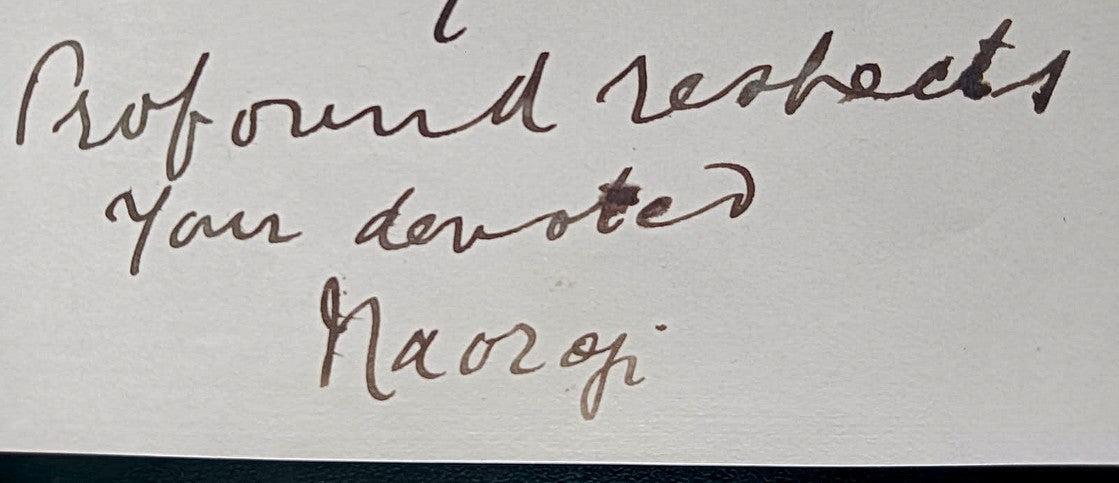 Profound respects
Your devoted
Naoroji